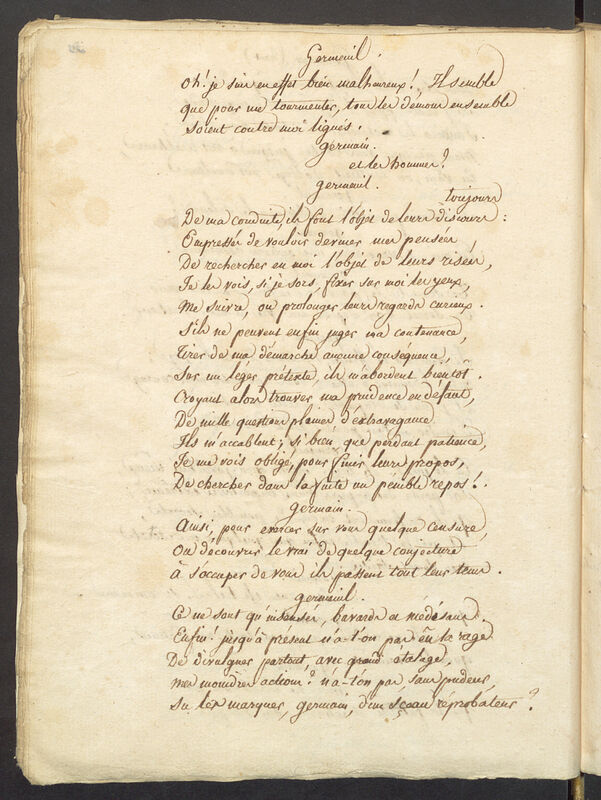 Germeuil.
Oh! je suis en effet bien malheureux! Il semble
que pour me tourmenter, tous les démons ensemble
soient contre moi ligués.
Germain.
et les hommes?
germeuil.
toujours
De ma conduite, ils font l'objet de leurs discours:
Empressés de vouloir deviner mes pensées
De rechercher en moi l'objet de leurs risées,
Je les vois, si je sors, fixer sur moi les yeux,
Me suivre, ou prolonger leurs regards curieux.
S'ils ne peuvent enfin juger ma contenance,
Tirer de ma démarche aucune conséquence,
Sur un léger prétexte, ils m'abordent bientôt.
Croyant alors trouver ma prudence en défaut,
De mille questions pleines d'extravagance
Ils m'accablent; si bien, que perdant patience,
Je me vois obligé, pour finir leurs propos,
De chercher dans la fuite un pénible repos!.
germain.
Ainsi, pour exercer sur vous quelque censure,
Ou découvrir le vrai de quelque conjecture
à s'occuper de vous ils passent tout leur tems.
germeuil.
Ce ne sont qu'insensés, bavards et médisans.
Enfin! jusqu'à présent n'a-t'on pas eû la rage
De divulguer partout, avec grand étalage,
Mes moindres actions? n'a-t-on pas, sans pudeur,
Su les marquer, germain, d'un sceau réprobateur?